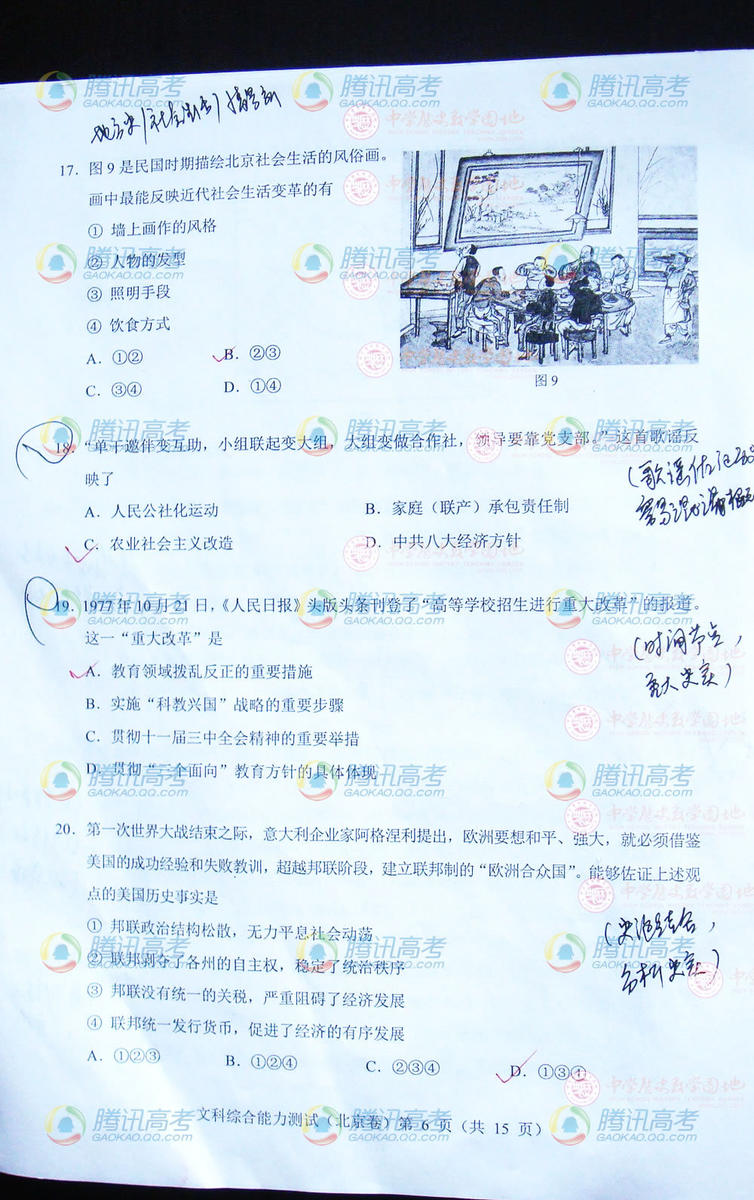 17. 图 9 是民国时期描绘北京社会生活的风俗画。
画中最能反映近代社会生活变革的有
① 墙上画作的风格
② 人物的发型
③ 照明手段
④ 饮食方式
A. ①② B. ②③
C. ③④ D. ①④
图 9
18. “单干邀伴变互助，小组联起变大组，大组变做合作社，领导要靠党支部。”这首歌谣反
映了
A. 人民公社化运动 B. 家庭（联产）承包责任制
C. 农业社会主义改造 D. 中共八大经济方针
19. 1977 年 10 月 21 日，《人民日报》头版头条刊登了“高等学校招生进行重大改革”的报道。
这一“重大改革”是
(时间节点，
重大史实)
A. 教育领域拨乱反正的重要措施
B. 实施“科教兴国”战略的重要步骤
C. 贯彻十一届三中全会精神的重要举措
D. 贯彻“三个面向”教育方针的具体体现
20. 第一次世界大战结束之际，意大利企业家阿格涅利提出，欧洲要想和平、强大，就必须借鉴
美国的成功经验和失败教训，超越邦联阶段，建立联邦制的“欧洲合众国”。能够佐证上述观
点的美国历史事实是
① 邦联政治结构松散，无力平息社会动荡
② 联邦剥夺了各州的自主权，稳定了统治秩序
③ 邦联没有统一的关税，严重阻碍了经济发展
④ 联邦统一发行货币，促进了经济的有序发展
(史论结合，
分析史实)
A. ①②③ B. ①②④ C. ②③④ D. ①③④
文科综合能力测试（北京卷）第 6 页（共 15 页）
腾讯高考
GAOKAO.QQ.COM
中学历史教学园地